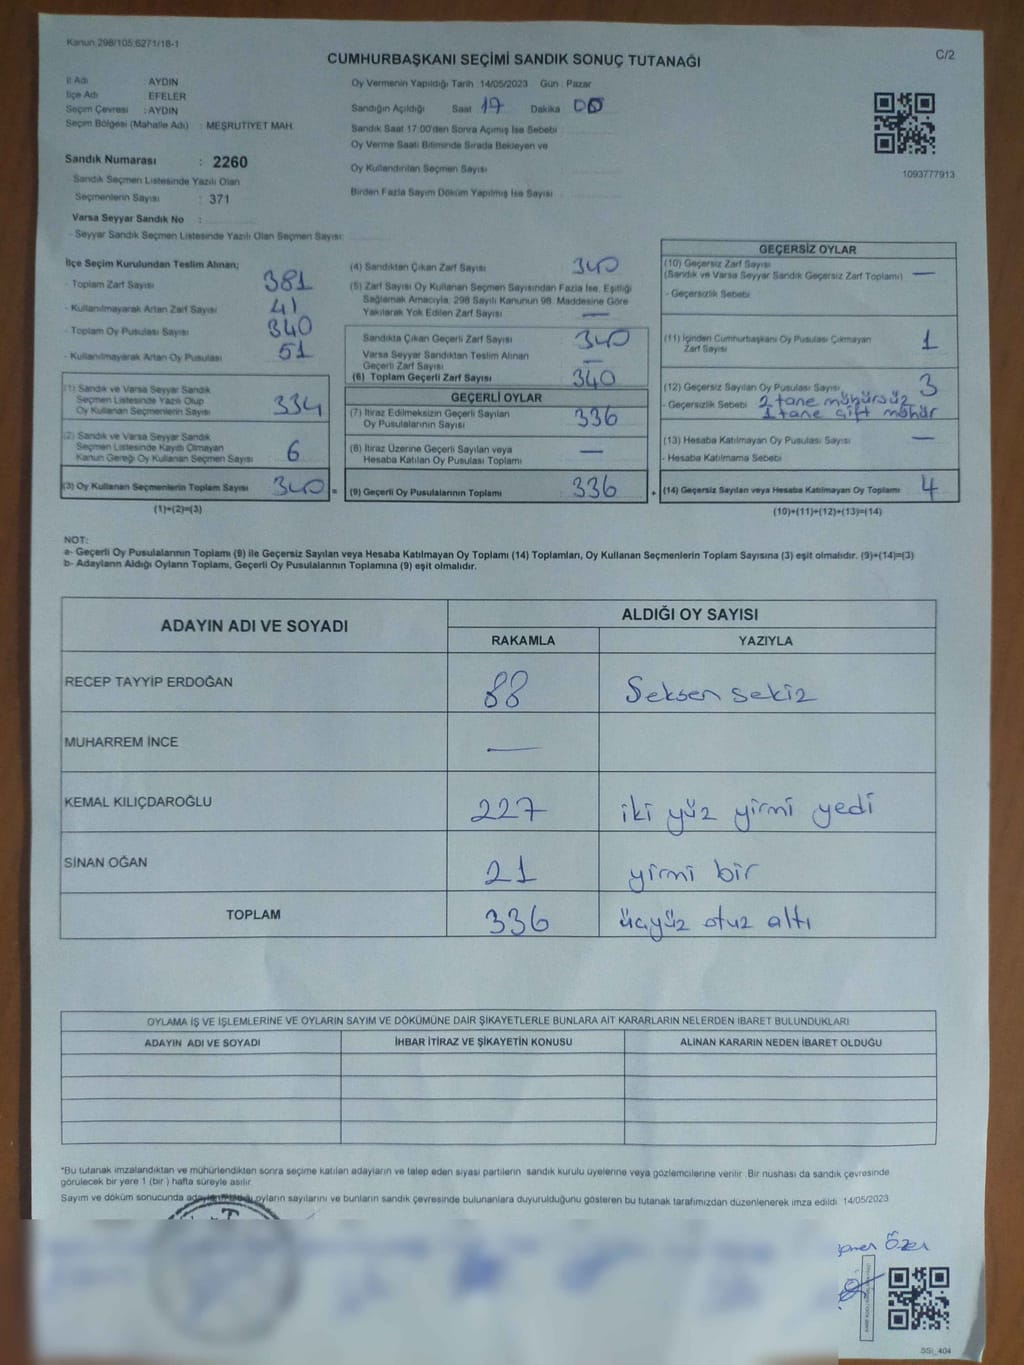 Kanun 298/105,6271/18-1
C/2
CUMHURBAŞKANI SEÇİMİ SANDIK SONUÇ TUTANAĞI
İl Adı AYDIN
İlçe Adı EFELER
Seçim Çevresi : AYDIN
Seçim Bölgesi (Mahalle Adı) : MEŞRUTİYET MAH.
Oy Vermenin Yapıldığı Tarih 14/05/2023 Gün : Pazar
Sandığın Açıldığı Saat 17 Dakika 00
Sandık Saat 17:00'den Sonra Açmış İse Sebebi
Oy Verme Saati Bitiminde Sırada Bekleyen ve
Oy Kullandırılan Seçmen Sayısı
Birden Fazla Sayım Döküm Yapılmış İse Sayısı
1093777913
Sandık Numarası : 2260
Sandık Seçmen Listesinde Yazılı Olan
Seçmenlerin Sayısı : 371
Varsa Seyyar Sandık No :
- Seyyar Sandık Seçmen Listesinde Yazılı Olan Seçmen Sayısı:
İlçe Seçim Kurulundan Teslim Alınan;
- Toplam Zarf Sayısı 381
- Kullanılmayarak Artan Zarf Sayısı 41
- Toplam Oy Pusulası Sayısı 340
- Kullanılmayarak Artan Oy Pusulası 51
(1) Sandık ve Varsa Seyyar Sandık
Seçmen Listesinde Yazılı Olup
Oy Kullanan Seçmenlerin Sayısı 334
(2) Sandık ve Varsa Seyyar Sandık
Seçmen Listesinde Kayıtlı Olmayan
Kanun Gereği Oy Kullanan Seçmen Sayısı 6
(3) Oy Kullanan Seçmenlerin Toplam Sayısı 340 =
(1)+(2)=(3)
(4) Sandıktan Çıkan Zarf Sayısı 340
(5) Zarf Sayısı Oy Kullanan Seçmen Sayısından Fazla İse, Eşitliği
Sağlamak Amacıyla, 298 Sayılı Kanunun 98. Maddesine Göre
Yakılarak Yok Edilen Zarf Sayısı —
Sandıkta Çıkan Geçerli Zarf Sayısı 340
Varsa Seyyar Sandıktan Teslim Alınan
Geçerli Zarf Sayısı —
(6) Toplam Geçerli Zarf Sayısı 340
GEÇERLİ OYLAR
(7) İtiraz Edilmeksizin Geçerli Sayılan
Oy Pusulalarının Sayısı 336
(8) İtiraz Üzerine Geçerli Sayılan veya
Hesaba Katılan Oy Pusulası Toplamı —
(9) Geçerli Oy Pusulalarının Toplamı 336 +
GEÇERSİZ OYLAR
(10) Geçersiz Zarf Sayısı
(Sandık ve Varsa Seyyar Sandık Geçersiz Zarf Toplamı) —
- Geçersizlik Sebebi
(11) İçinden Cumhurbaşkanı Oy Pusulası Çıkmayan
Zarf Sayısı 1
(12) Geçersiz Sayılan Oy Pusulası Sayısı 3
- Geçersizlik Sebebi 2 tane mühürsüz
1 tane çift mühür
(13) Hesaba Katılmayan Oy Pusulası Sayısı —
- Hesaba Katılmama Sebebi
(14) Geçersiz Sayılan veya Hesaba Katılmayan Oy Toplamı 4
(10)+(11)+(12)+(13)=(14)
NOT:
a- Geçerli Oy Pusulalarının Toplamı (9) ile Geçersiz Sayılan veya Hesaba Katılmayan Oy Toplamı (14) Toplamları, Oy Kullanan Seçmenlerin Toplam Sayısına (3) eşit olmalıdır. (9)+(14)=(3)
b- Adayların Aldığı Oyların Toplamı, Geçerli Oy Pusulalarının Toplamına (9) eşit olmalıdır.
ADAYIN ADI VE SOYADI ALDIĞI OY SAYISI
RAKAMLA YAZIYLA
RECEP TAYYİP ERDOĞAN 88 Seksen sekiz
MUHARREM İNCE —
KEMAL KILIÇDAROĞLU 227 iki yüz yirmi yedi
SİNAN OĞAN 21 yirmi bir
TOPLAM 336 üçyüz otuz altı
OYLAMA İŞ VE İŞLEMLERİNE VE OYLARIN SAYIM VE DÖKÜMÜNE DAİR ŞİKAYETLERLE BUNLARA AİT KARARLARIN NELERDEN İBARET BULUNDUKLARI
ADAYIN ADI VE SOYADI İHBAR İTİRAZ VE ŞİKAYETİN KONUSU ALINAN KARARIN NEDEN İBARET OLDUĞU
*Bu tutanak imzalandıktan ve mühürlendikten sonra seçime katılan adayların ve talep eden siyasi partilerin sandık kurulu üyelerine veya gözlemcilerine verilir. Bir nüshası da sandık çevresinde
görülecek bir yere 1 (bir) hafta süreyle asılır.
Sayım ve döküm sonucunda adayların aldığı oyların sayılarını ve bunların sandık çevresinde bulunanlara duyurulduğunu gösteren bu tutanak tarafımızdan düzenlenerek imza edildi. 14/05/2023
Özer
SSİ_404